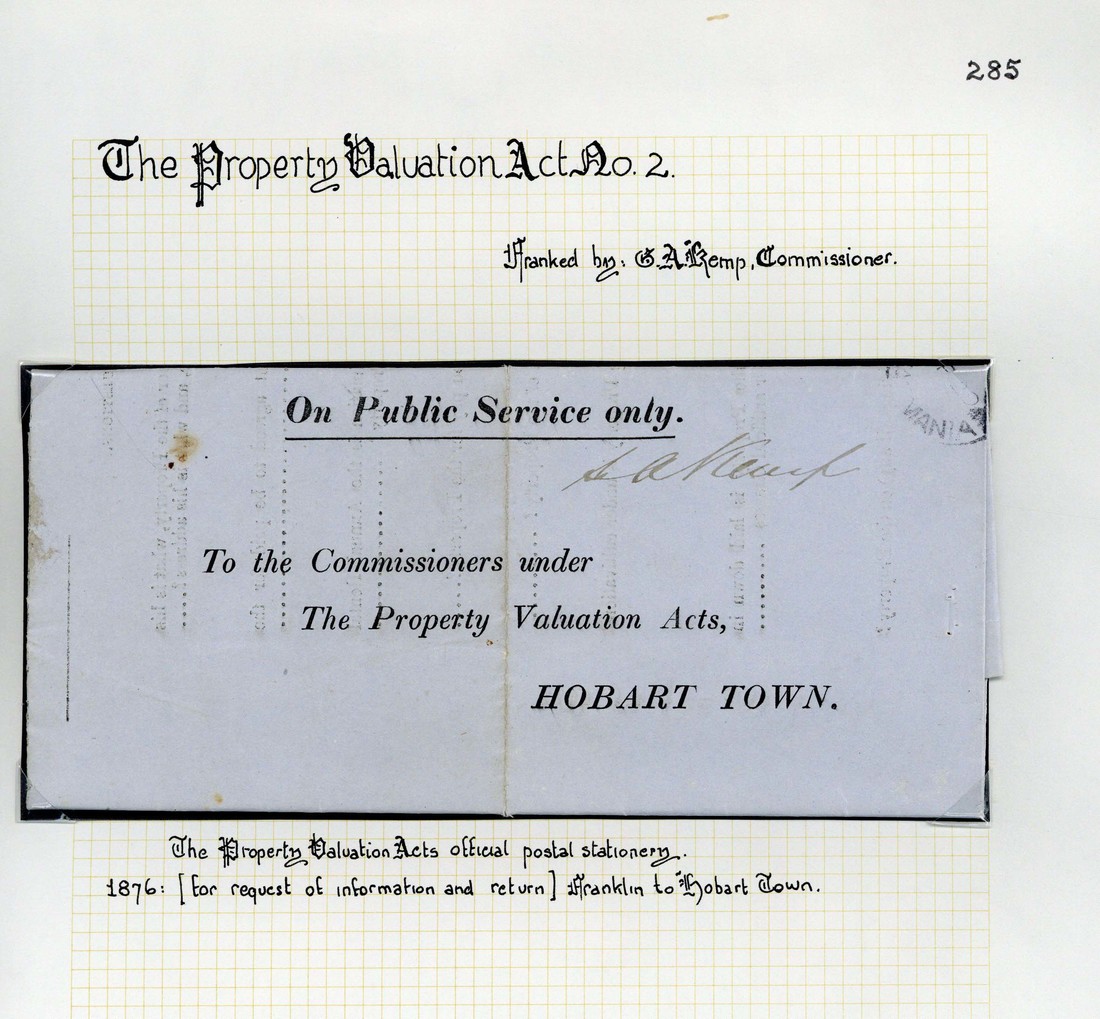 285
The Property Valuation Act No. 2.
Franked by: G.A. Kemp, Commissioner.
On Public Service only.
G A Kemp
To the Commissioners under
The Property Valuation Acts,
HOBART TOWN.
The Property Valuation Acts official postal stationery.
1876: [for request of information and return] Franklin to Hobart Town.